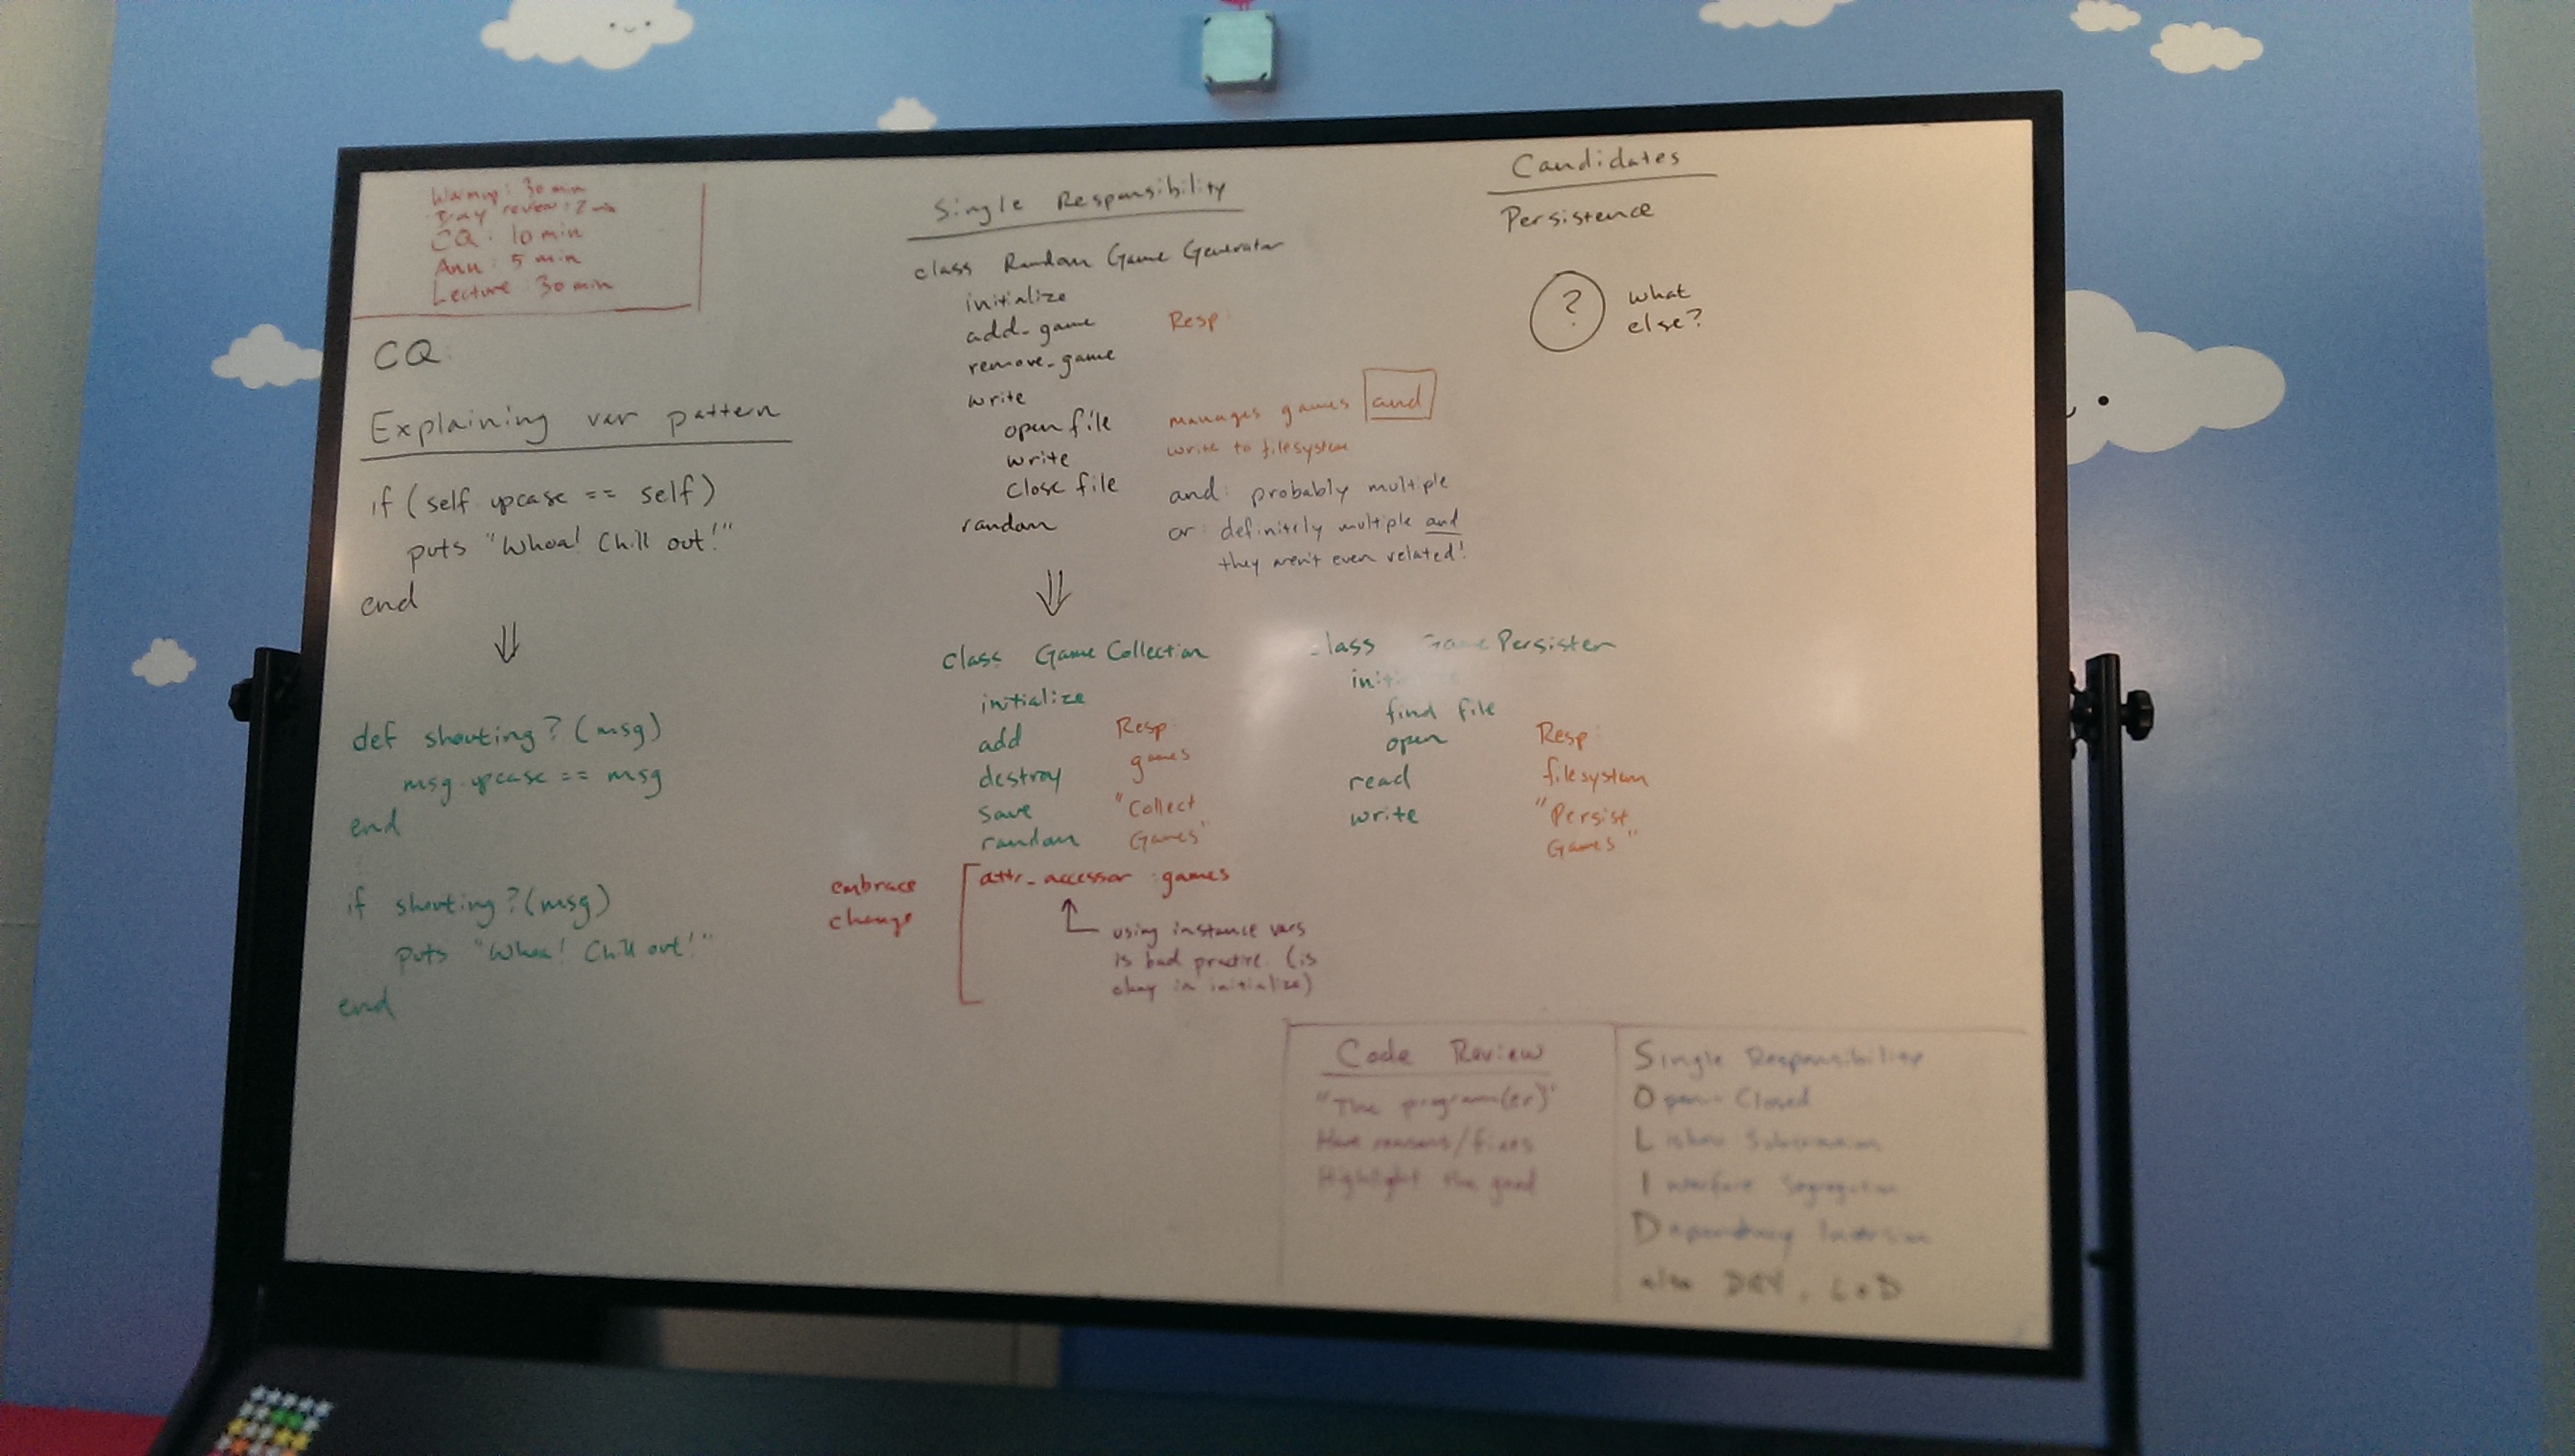 Warmup: 30 min
Day review: 2 min
CQ: 10 min
Ann: 5 min
Lecture: 30 min
CQ:
Explaining var pattern
if (self.upcase == self)
puts "Whoa! Chill out!"
end
⇓
def shouting?(msg)
msg.upcase == msg
end
if shouting?(msg)
puts "Whoa! Chill out!"
end
Single Responsibility
class Random Game Generator
initialize
add_game
remove_game
write
open file
write
close file
random
Resp:
manages games and
write to filesystem
and: probably multiple
or: definitely multiple and
they aren't even related!
⇓
class Game Collection
initialize
add
destroy
save
random
Resp:
games
"Collect
Games"
embrace
change
attr_accessor :games
using instance vars
is bad practice (is
okay in initialize)
class Game Persister
find file
open
read
write
Resp:
filesystem
"Persist
Games"
Candidates
Persistence
? what
else?
Code Review
"The program(er)"
Have reasons/fixes
Highlight the good
Single Responsibility
Open-Closed
Liskov Substitution
Interface Segregation
Dependency Inversion
also DRY, LoD